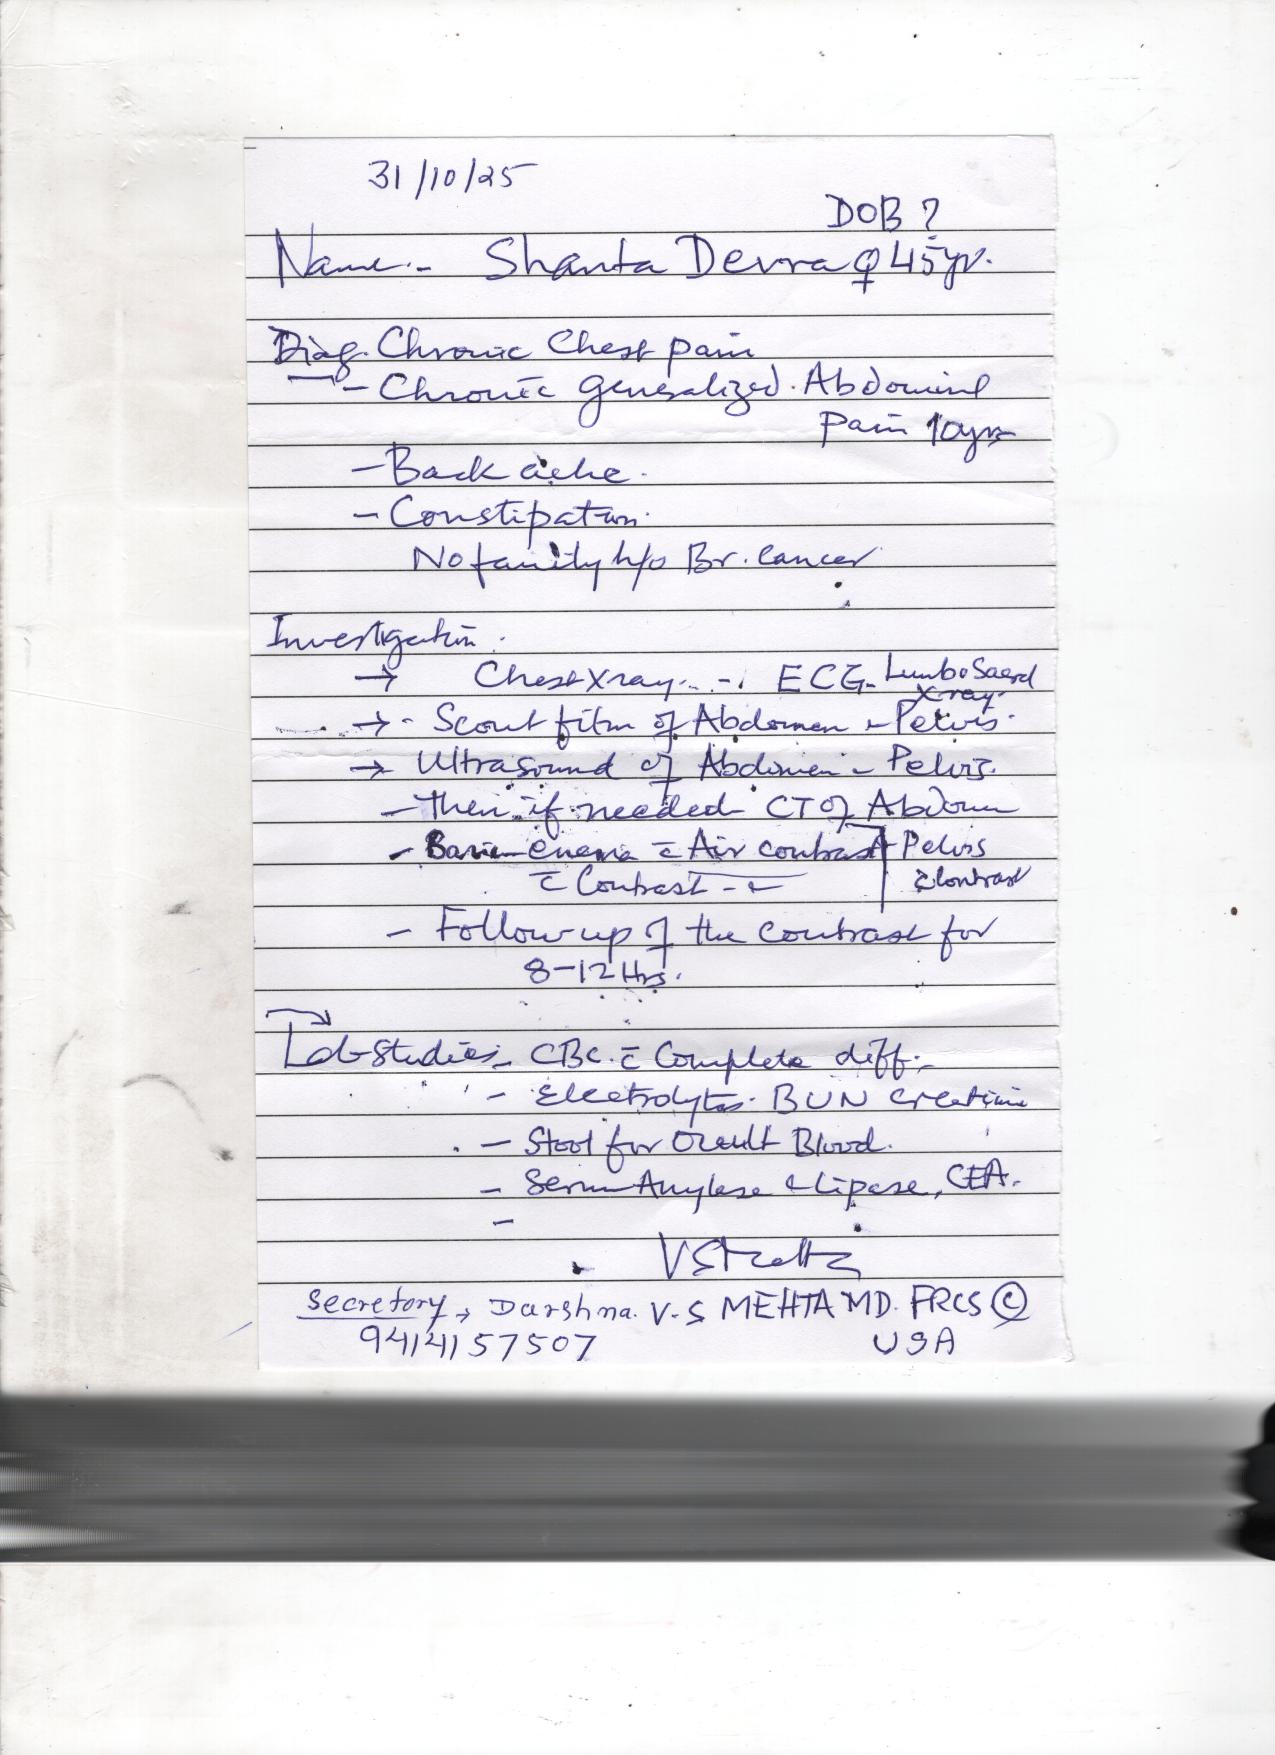 31/10/25
DOB ?
Name:- Shanta Devra ♀ 45yr.
Diag. Chronic Chest pain
- Chronic generalized. Abdominl
Pain 10yrs
- Back ache.
- Constipation.
No family h/o Br. Cancer
Investigation.
→ Chest Xray. - ECG - LumboSacral
Xray.
→ - Scout film of Abdomen & Pelvis.
→ Ultrasound of Abdomen & Pelvis.
- Then if needed CT of Abdom
- Barium enema c̄ Air contrast Pelvis
c̄ Contrast - c̄ Contrast
- Follow up of the contrast for
8-12 Hrs.
Lab Studies - CBC. c̄ Complete diff.-
- Electrolytes. BUN Creatinine
- Stool for Occult Blood.
- Serum Amylase & Lipase, CEA.
-
VSMehta
Secretory, Darshna. V-S MEHTA MD. FRCS ©
9414157507 USA